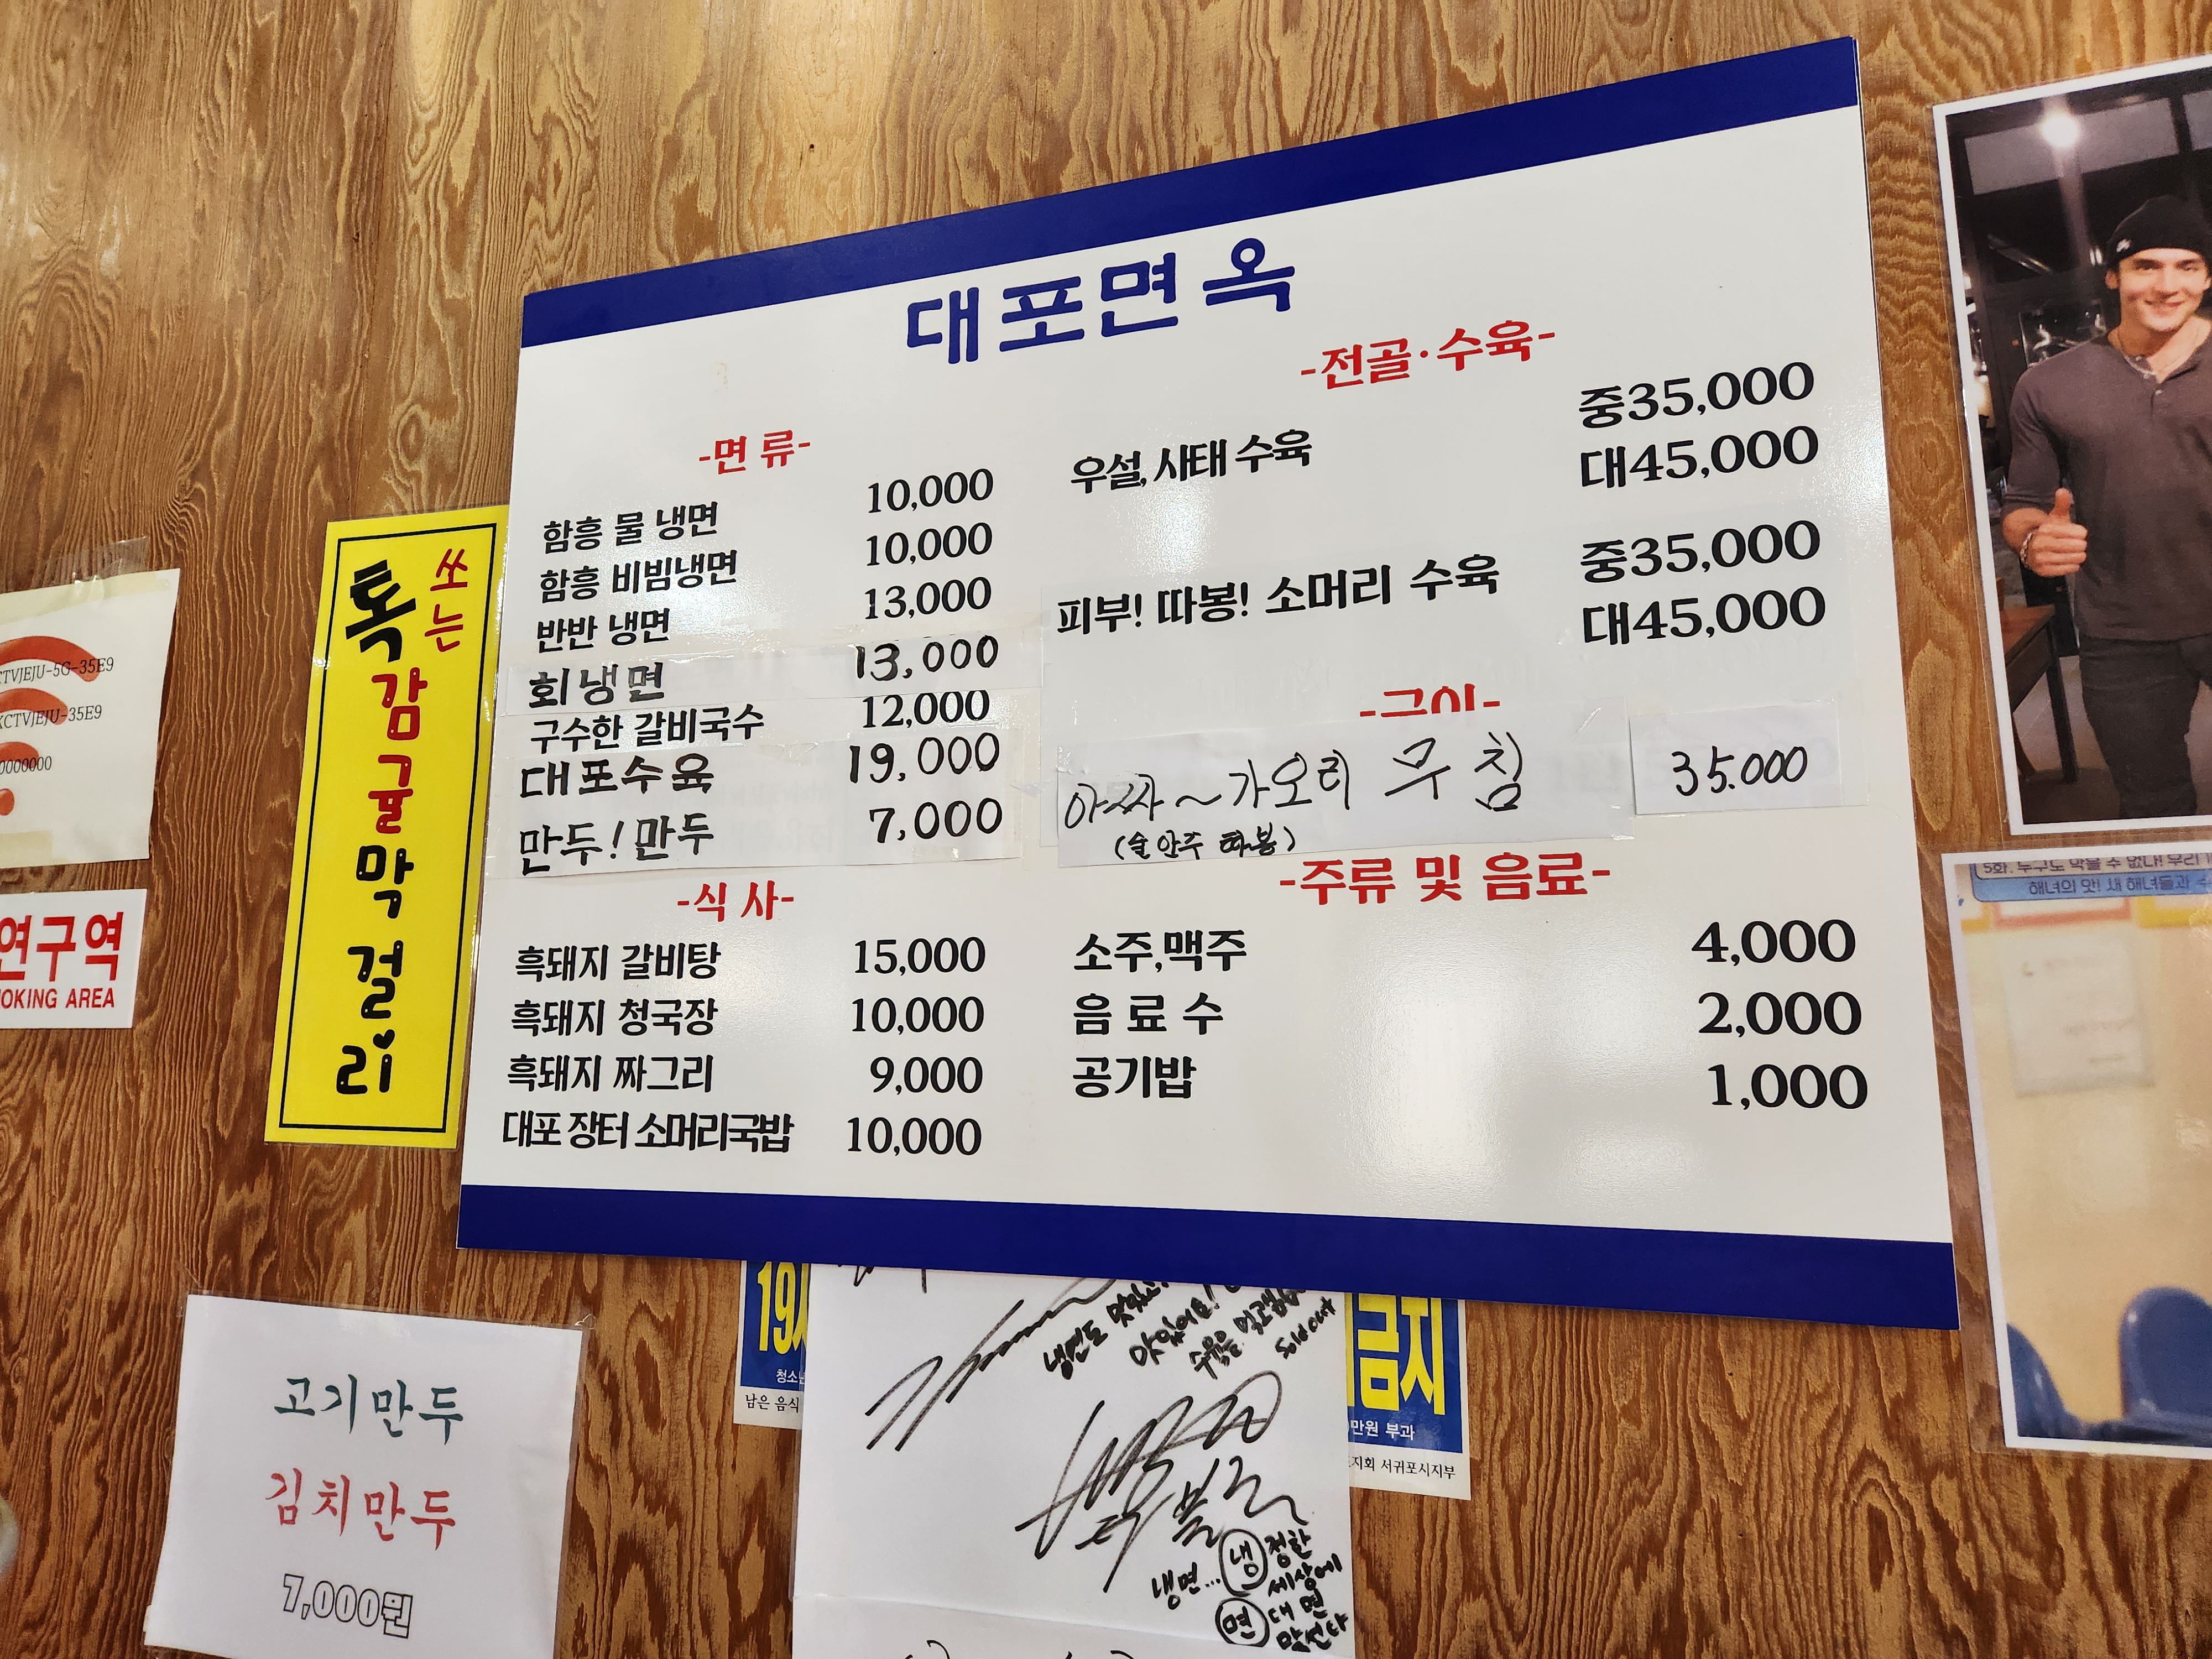 대포면옥
-면 류-
함흥 물 냉면 10,000
함흥 비빔냉면 10,000
반반 냉면 13,000
회냉면 13,000
구수한 갈비국수 12,000
대포수육 19,000
만두! 만두 7,000
-식 사-
흑돼지 갈비탕 15,000
흑돼지 청국장 10,000
흑돼지 짜그리 9,000
대포 장터 소머리국밥 10,000
-전골·수육-
우설, 사태 수육 중35,000
대45,000
피부! 따봉! 소머리 수육 중35,000
대45,000
-구이-
아싸~가오리 무침 35.000
(술안주 따봉)
-주류 및 음료-
소주,맥주 4,000
음 료 수 2,000
공기밥 1,000
톡 쏘는
감귤막걸리
CTVJEJU-5G-35E9
KCTVJEJU-35E9
0000000
연구역
OKING AREA
고기만두
김치만두
7,000원
19
청소년
남은 음식
금지
만원 부과
지회 서귀포시지부
냉면도
맛있어요!
수육은
냉면... 냉 정한
세상에
면 대 면
맞선다
해녀의 맛! 새 해녀들과